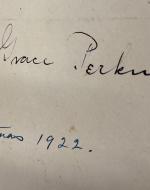 Grace Perkin
mas 1922.